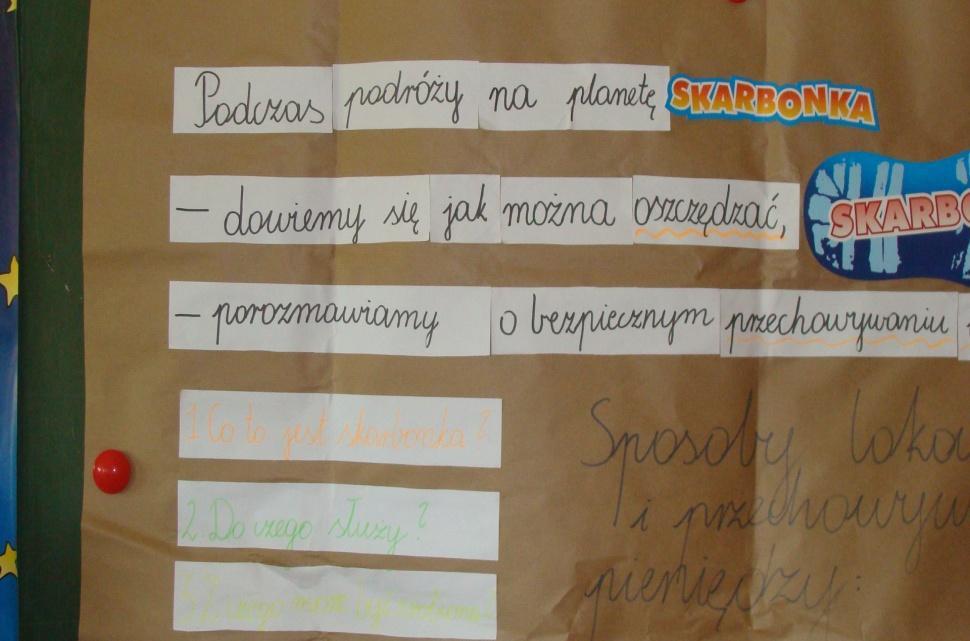 Podczas podróży na planetę SKARBONKA
– dowiemy się jak można oszczędzać,
SKARBO
– porozmawiamy o bezpiecznym przechowywaniu
1. Co to jest skarbonka?
2. Do czego służy?
3. Z czego może być zrobiona?
Sposoby loka
i przechowyw
pieniędzy: